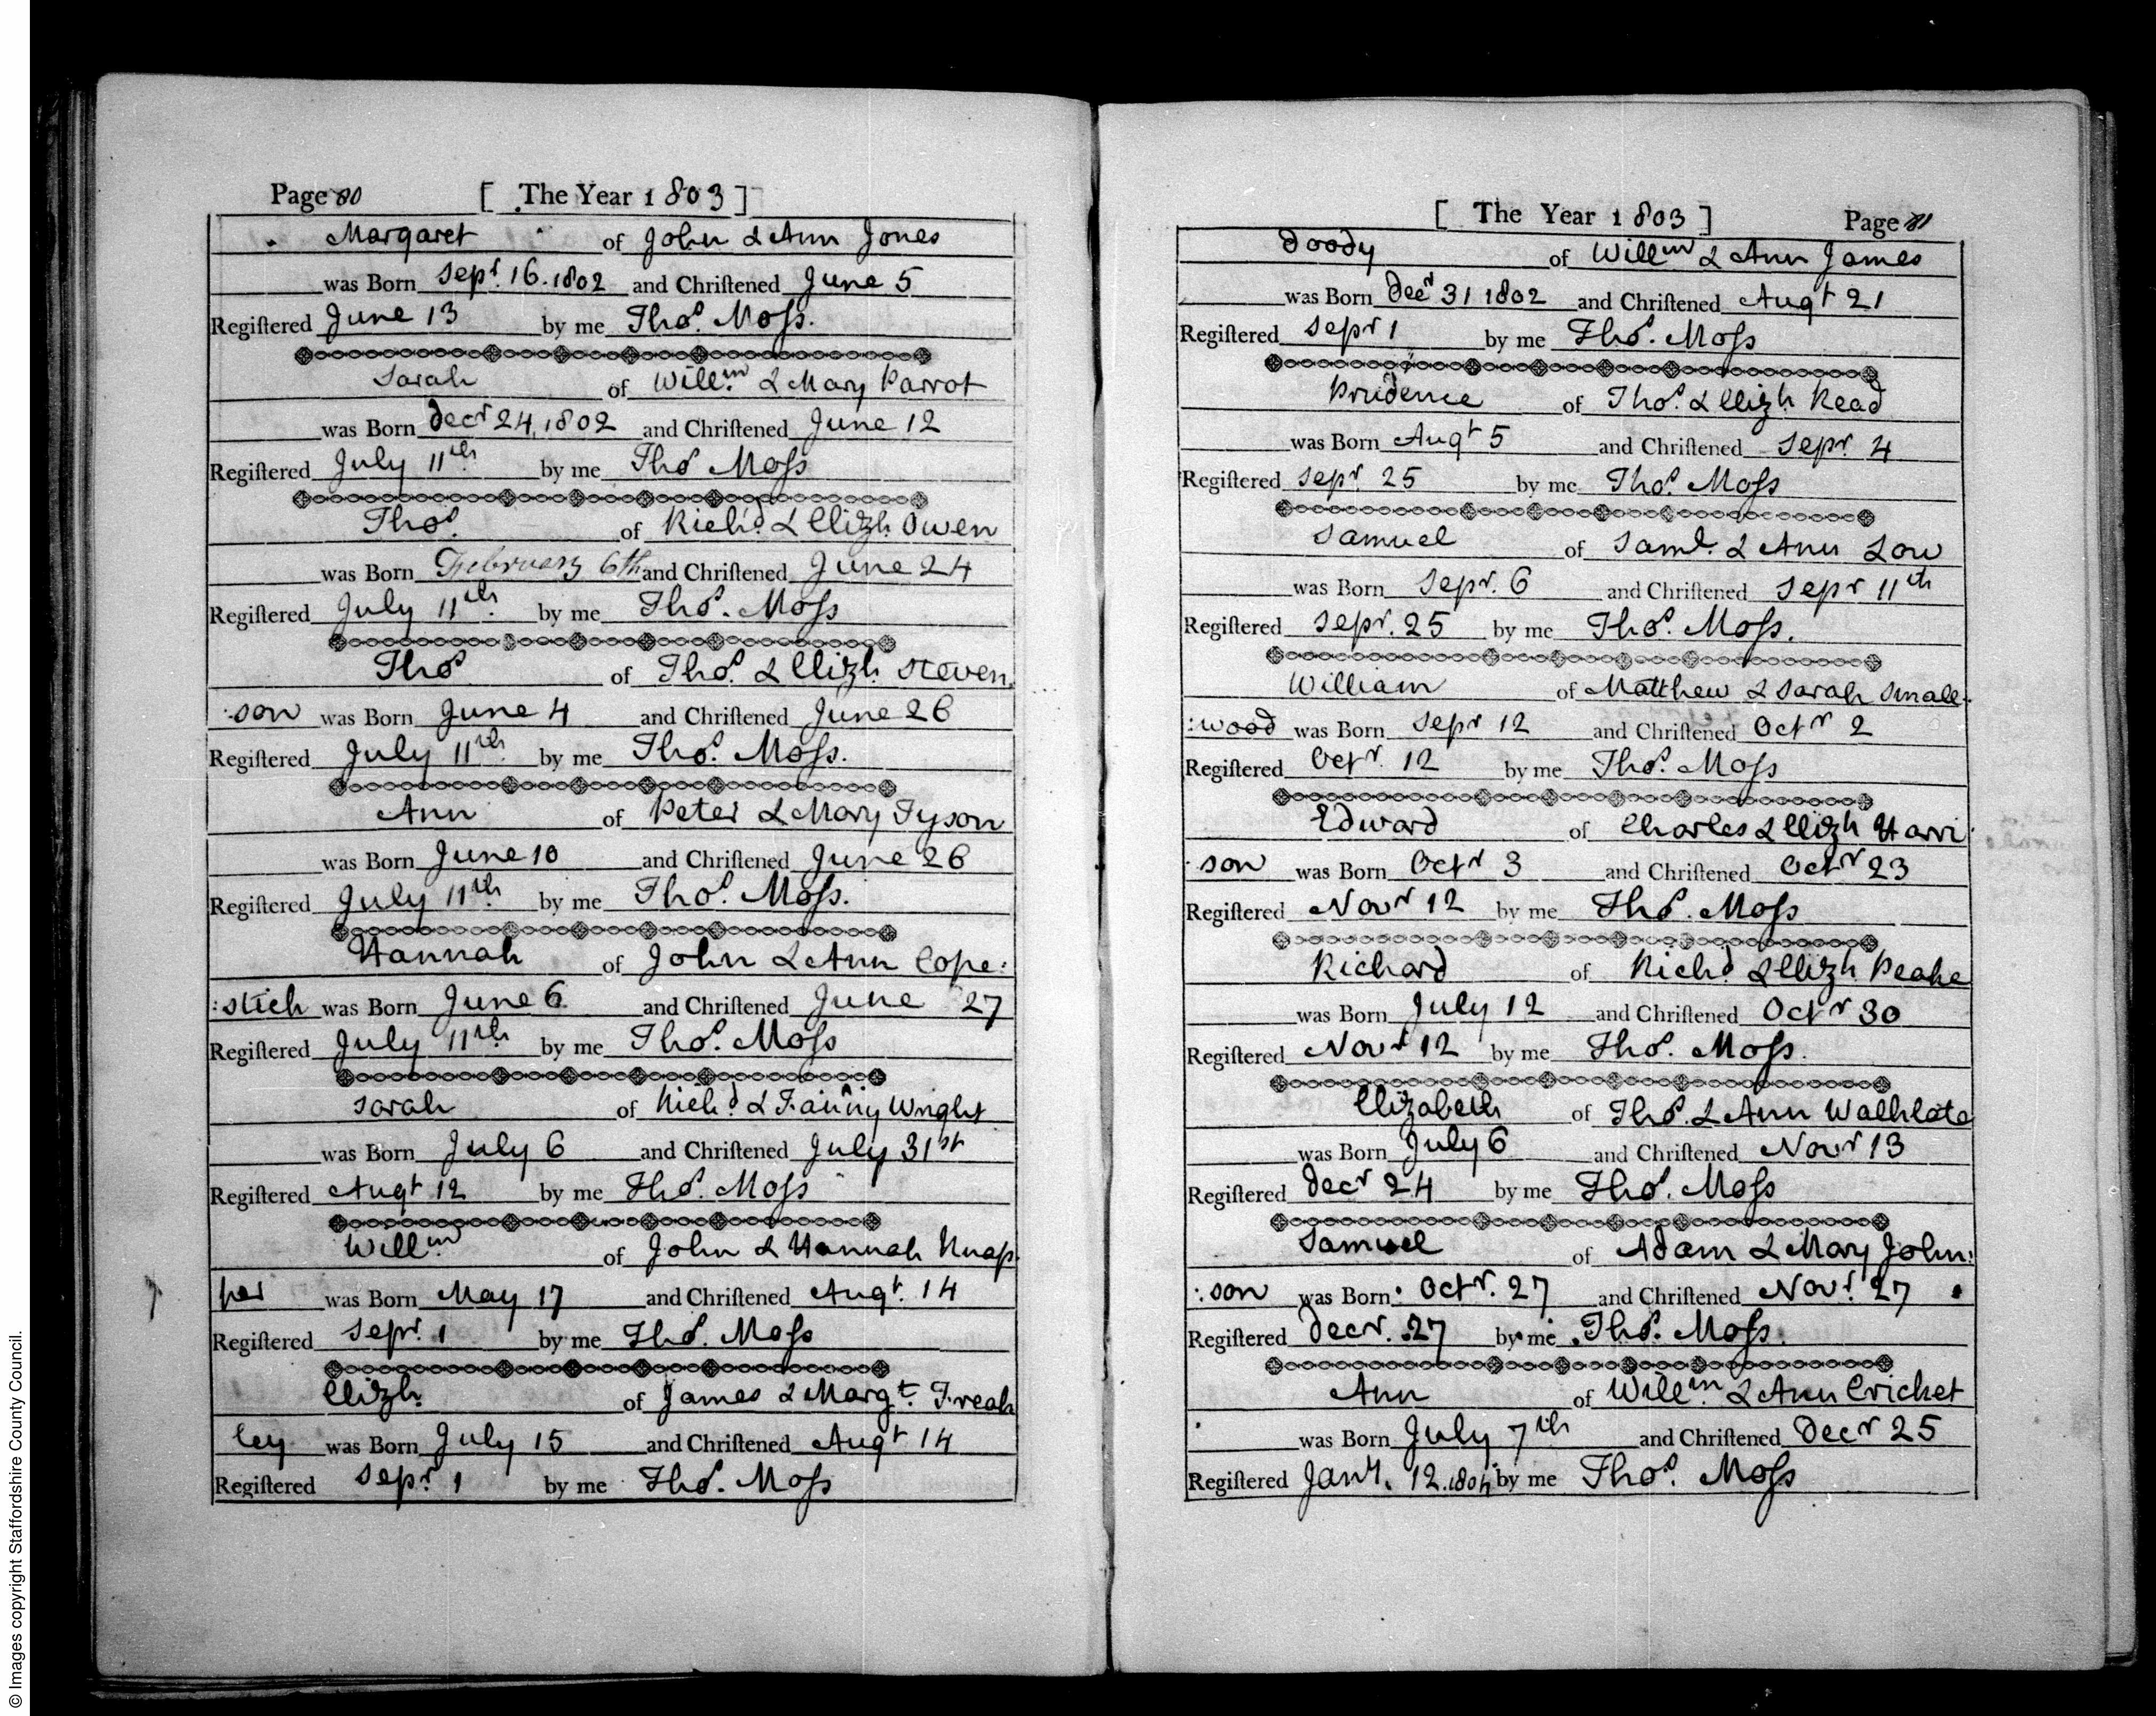 Page 80 [ The Year 1803 ]
Margaret of John & Ann Jones
was Born Sepr. 16. 1802 and Chriſtened June 5
Regiſtered June 13 by me Thos. Moſs.
Sarah of Willm. & Mary Parrot
was Born Decr 24, 1802 and Chriſtened June 12
Regiſtered July 11th by me Thos Moſs
Thos. of Richd. & Elizh. Owen
was Born February 6th and Chriſtened June 24
Regiſtered July 11th. by me Thos. Moſs
Thos of Thos. & Elizh. Steven
:son was Born June 4 and Chriſtened June 26
Regiſtered July 11th. by me Thos. Moſs.
Ann of Peter & Mary Tyson
was Born June 10 and Chriſtened June 26
Regiſtered July 11th. by me Thos. Moſs.
Hannah of John & Ann Cope:
:stich was Born June 6 and Chriſtened June 27
Regiſtered July 11th. by me Thos. Moſs
Sarah of Richd. & Fanny Wright
was Born July 6 and Chriſtened July 31st
Regiſtered Augt 12 by me Thos. Moſs
Willm of John & Hannah Knap
per was Born May 17 and Chriſtened Augt. 14
Regiſtered Sepr. 1 by me Thos. Moſs
Elizh. of James & Margt. Freak
ley was Born July 15 and Chriſtened Augt 14
Regiſtered Sepr. 1 by me Thos. Moſs
[ The Year 1803 ] Page 81
Doody of Willm & Ann James
was Born Decr 31 1802 and Chriſtened Augt 21
Regiſtered Sepr 1 by me Thos. Moſs
Prudence of Thos. & Elizh Read
was Born Augt 5 and Chriſtened Sepr. 4
Regiſtered Sepr. 25 by me Thos. Moſs
Samuel of Saml. & Ann Low
was Born Sepr. 6 and Chriſtened Sepr 11th
Regiſtered Sepr. 25 by me Thos. Moſs.
William of Matthew & Sarah Small:
:wood was Born Sepr 12 and Chriſtened Octr 2
Regiſtered Octr. 12 by me Thos. Moſs
Edward of Charles & Elizh Harri
:son was Born Octr 3 and Chriſtened Octr 23
Regiſtered Novr 12 by me Thos. Moſs
Richard of Richd. & Elizh. Peake
was Born July 12 and Chriſtened Octr 30
Regiſtered Novr 12 by me Thos. Moſs.
Elizabeth of Thos. & Ann Walklate
was Born July 6 and Chriſtened Novr 13
Regiſtered Decr 24 by me Thos. Moſs
Samuel of Adam & Mary John:
:son was Born Octr. 27 and Chriſtened Novr. 27
Regiſtered Decr. 27 by me Thos. Moſs.
Ann of Willm. & Ann Cricket
was Born July 7th and Chriſtened Decr 25
Regiſtered Jany. 12. 1804 by me Thos. Moſs
© Images copyright Staffordshire County Council.